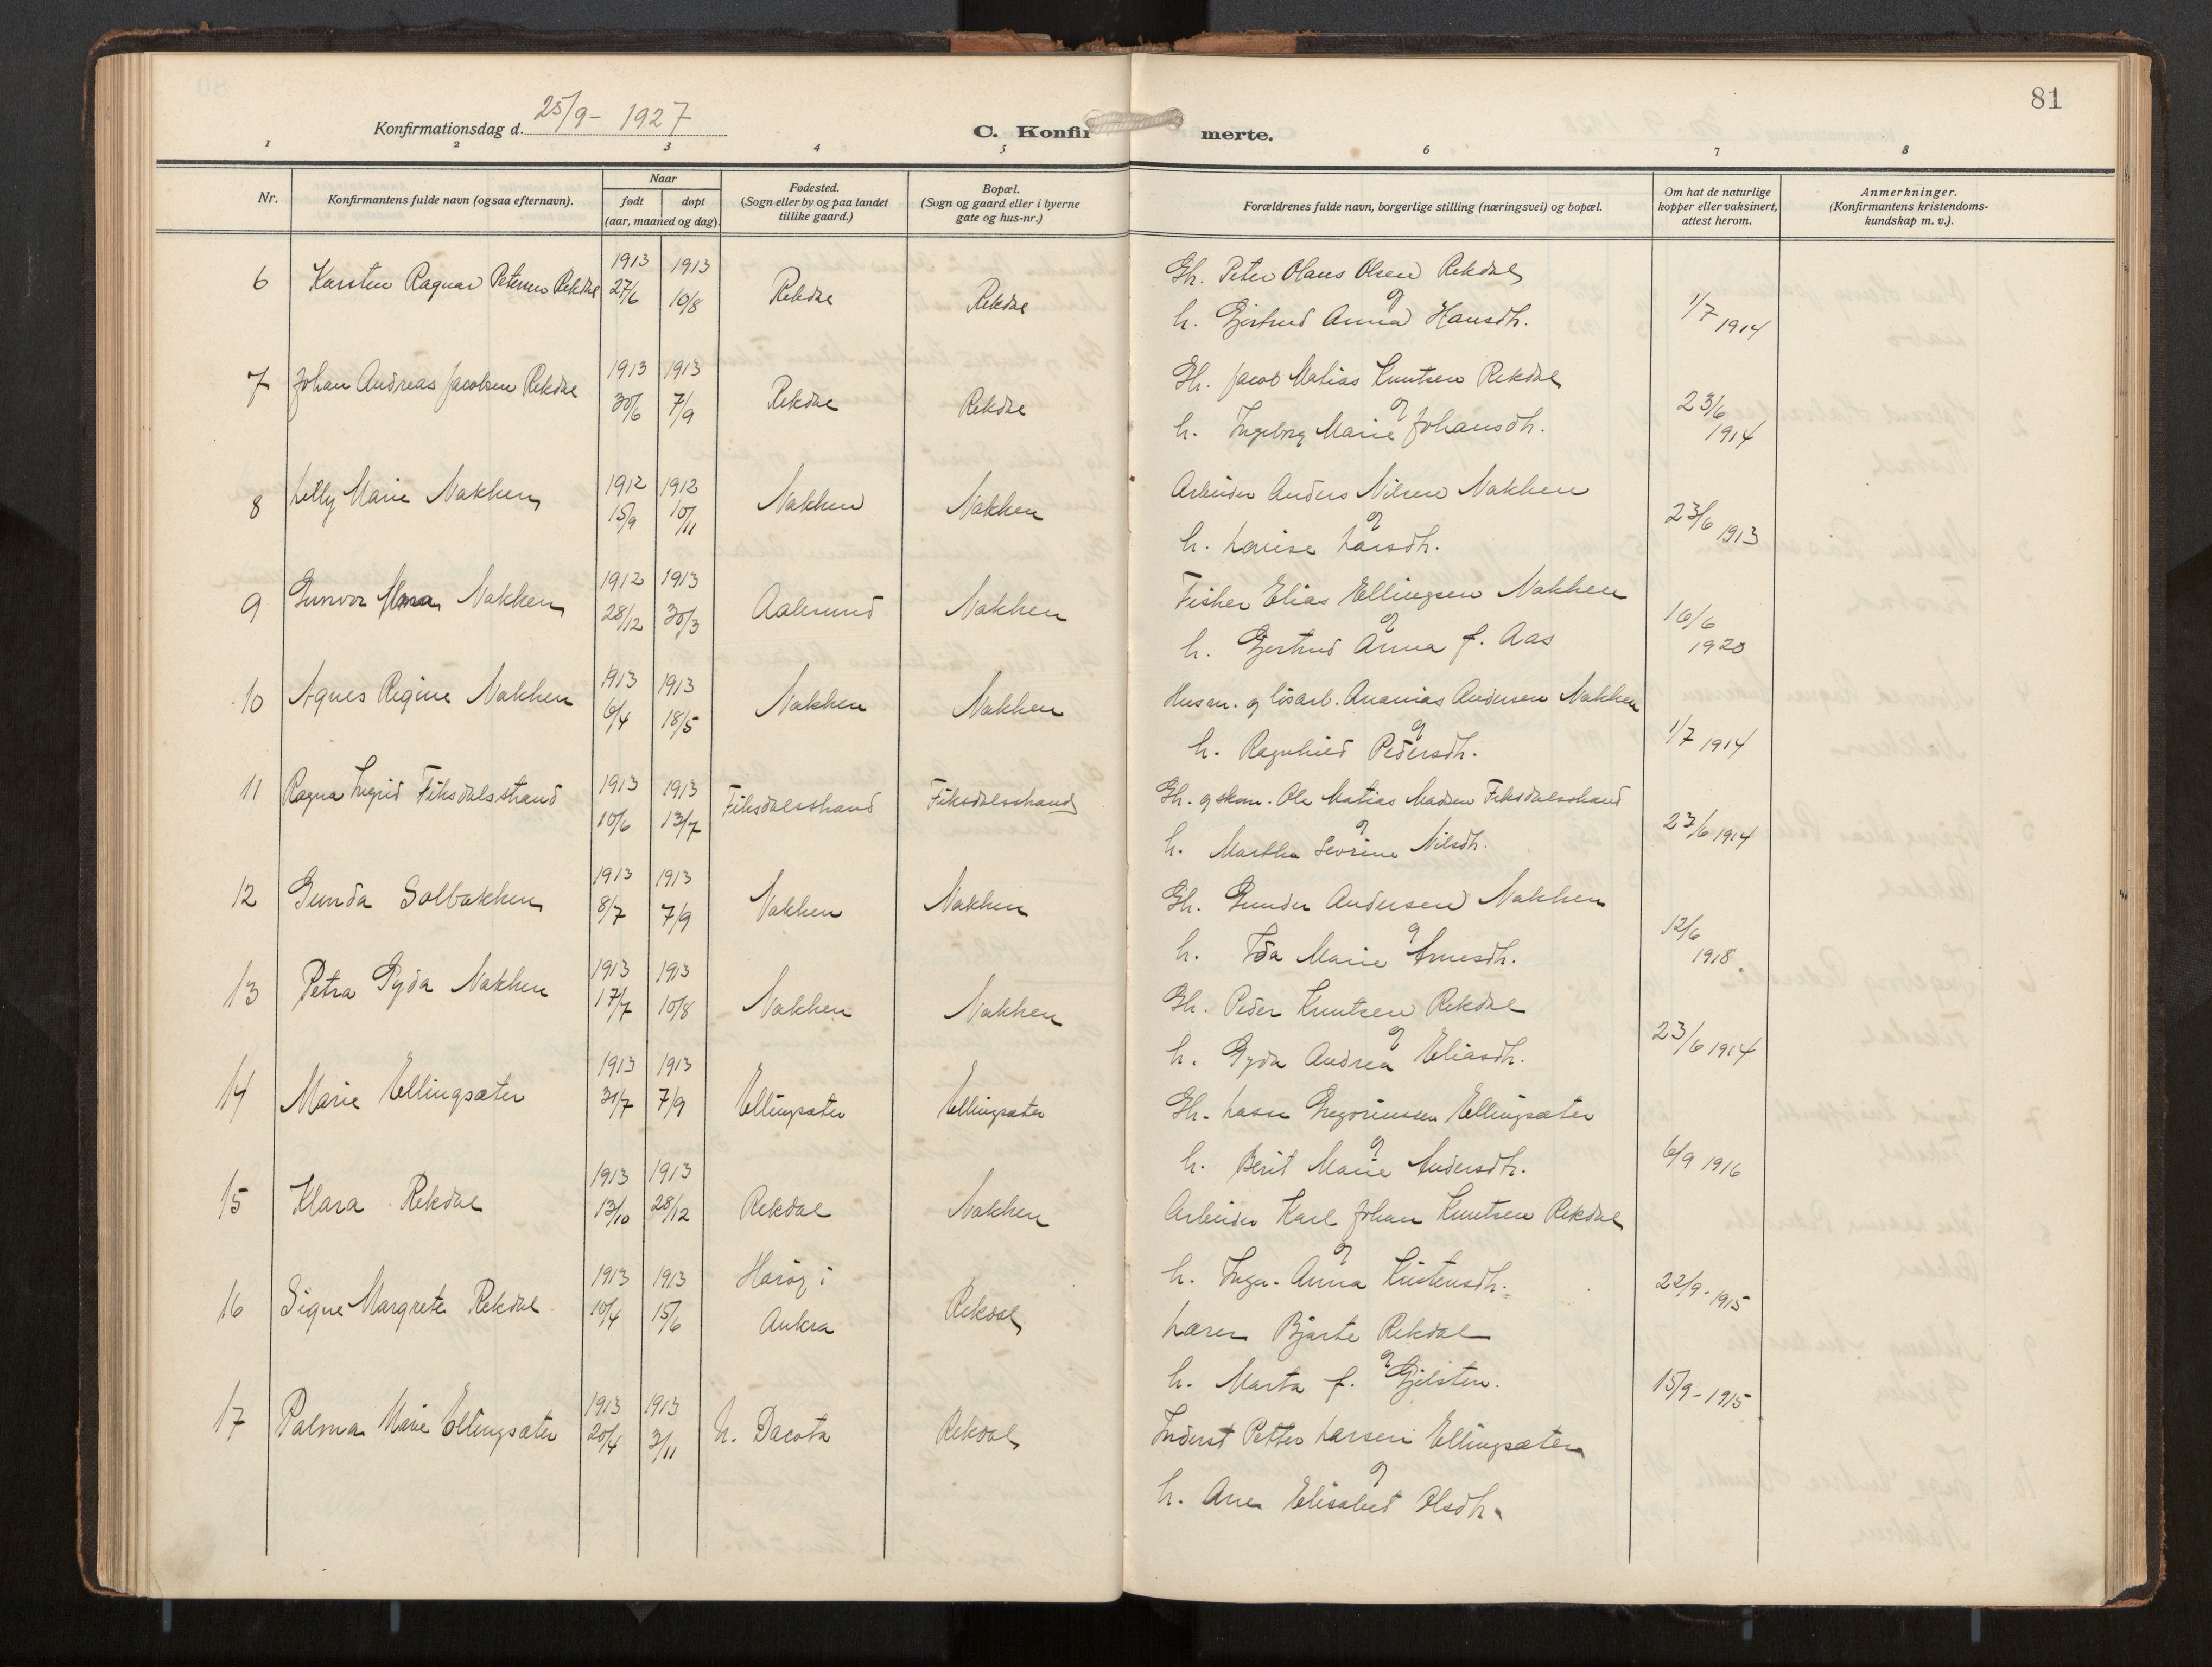 81
Konfirmationsdag d. 25/9 - 1927
C. Konfirmerte.
1 2 3 4 5 6 7 8
Nr.
Konfirmantens fulde navn (ogsaa efternavn).
Naar
født døpt
(aar, maaned og dag).
Fødested.
(Sogn eller by og paa landet
tillike gaard.)
Bopæl.
(Sogn og gaard eller i byerne
gate og hus-nr.)
Forældrenes fulde navn, borgerlige stilling (næringsvei) og bopæl.
Om hat de naturlige
kopper eller vaksinert,
attest herom.
Anmerkninger.
(Konfirmantens kristendoms-
kundskap m. v.).
6 Karsten Ragnar Petersen Rekdal 1913 27/6 1913 10/8 Rekdal Rekdal
Gb. Peter Olaus Olsen Rekdal
og
h. Gjertrud Anna Hansdtr.
1/7 1914
7 Johan Andreas Jacobsen Rekdal 1913 30/6 1913 7/9 Rekdal Rekdal
Gb. Jacob Matias Knutsen Rekdal
og
h. Ingeborg Marie Johansdtr.
23/6 1914
8 Lilly Marie Nakken 1912 15/9 1912 10/11 Nakken Nakken
Arbeider Anders Nilsen Nakken
og
h. Lovise Larsdtr.
23/6 1913
9 Gunvor Nakken 1912 28/12 1913 30/3 Aalesund Nakken
Fisker Elias Ellingsen Nakken
og
h. Gjertrud Anna f. Aas
16/6 1920
10 Agnes Regine Nakken 1913 6/4 1913 18/5 Nakken Nakken
Husm. og løsarb. Ananias Andersen Nakken
og
h. Ragnhild Pedersdtr.
1/7 1914
11 Ragna Ingrid Fiksdalsstrand 1913 10/6 1913 13/7 Fiksdalsstrand Fiksdalsstrand
Gb. og skom. Ole Matias Madsen Fiksdalsstrand
og
h. Martha Sevrine Nilsdtr.
23/6 1914
12 Gunda Solbakken 1913 8/7 1913 7/9 Nakken Nakken
Gb. Gunder Andersen Nakken
og
h. Ida Marie Arnesdtr.
12/6 1918
13 Petra Gyda Nakken 1913 17/7 1913 10/8 Nakken Nakken
Gb. Peder Knutsen Rekdal
og
h. Gyda Andrea Eliasdtr.
23/6 1914
14 Marie Ellingsæter 1913 31/7 1913 7/9 Ellingsæter Ellingsæter
Gb. Lasse Gregoriussen Ellingsæter
og
h. Berit Marie Andersdtr.
6/9 1916
15 Klara Rekdal 1913 13/10 1913 28/12 Rekdal Nakken
Arbeider Karl Johan Knutsen Rekdal
og
h. Inga Anna Kristensdtr.
22/9 - 1915
16 Signe Margrete Rekdal 1913 10/4 1913 15/6 Harøy i
Aukra Rekdal
Lærer Bjarte Rekdal
og
h. Marta f. Gjelsten.
15/9 - 1915
17 Palma Marie Ellingsæter 1913 20/4 1913 3/11 N. Dacota Rekdal
Inderst Petter Larsen Ellingsæter
og
h. Ane Elisabet Olsdtr.